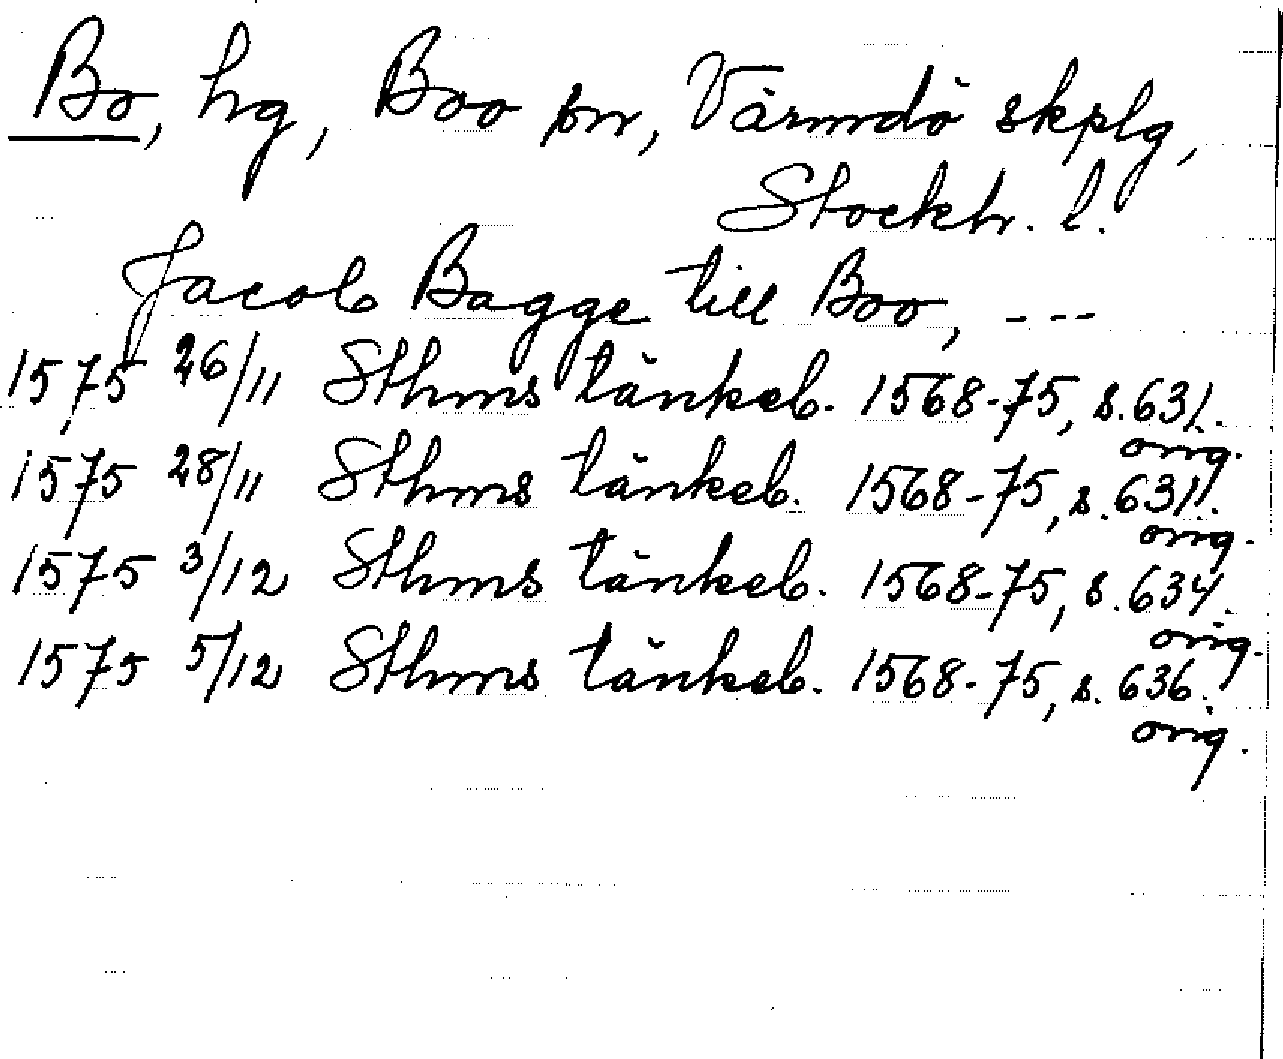 Bo, hg, Boo sn, Värmdö skplg,
Stockh. l.
Jacob Bagge till Boo, ---
1575 26/11 Sthms tänkeb. 1568-75, s. 631.
orig.
1575 28/11 Sthms tänkeb. 1568-75, s. 631.
orig.
1575 3/12 Sthms tänkeb. 1568-75, s. 634.
orig.
1575 5/12 Sthms tänkeb. 1568-75, s. 636.
orig.